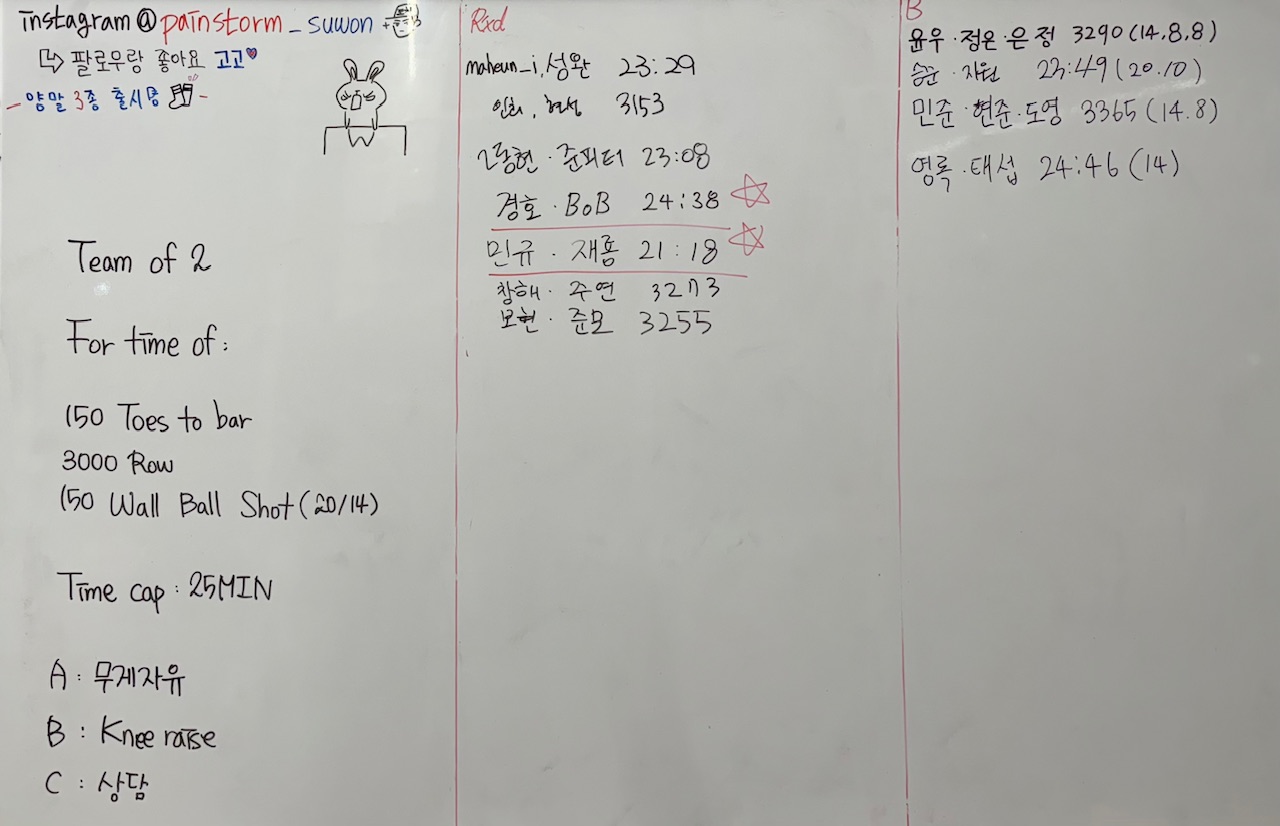 instagram@painstorm_suwon
팔로우랑 좋아요 고고
- 양말 3종 출시중 -
Team of 2
For time of :
150 Toes to bar
3000 Row
150 Wall Ball Shot (20/14)
Time cap : 25MIN
A : 무게자유
B : Knee raise
C : 상담
Rxd
maheun_i, 성완 23:29
인희, 현성 3153
동현 · 준피터 23:08
경호 · BoB 24:38
민규 · 재홍 21:18
창해 · 주연 3273
보현 · 준모 3255
B
윤우 · 정은 · 은정 3290 (14.8.8)
승준 · 자원 23:49 (20.10)
민준 · 현준 · 도영 3365 (14.8)
영록 · 태섭 24:46 (14)